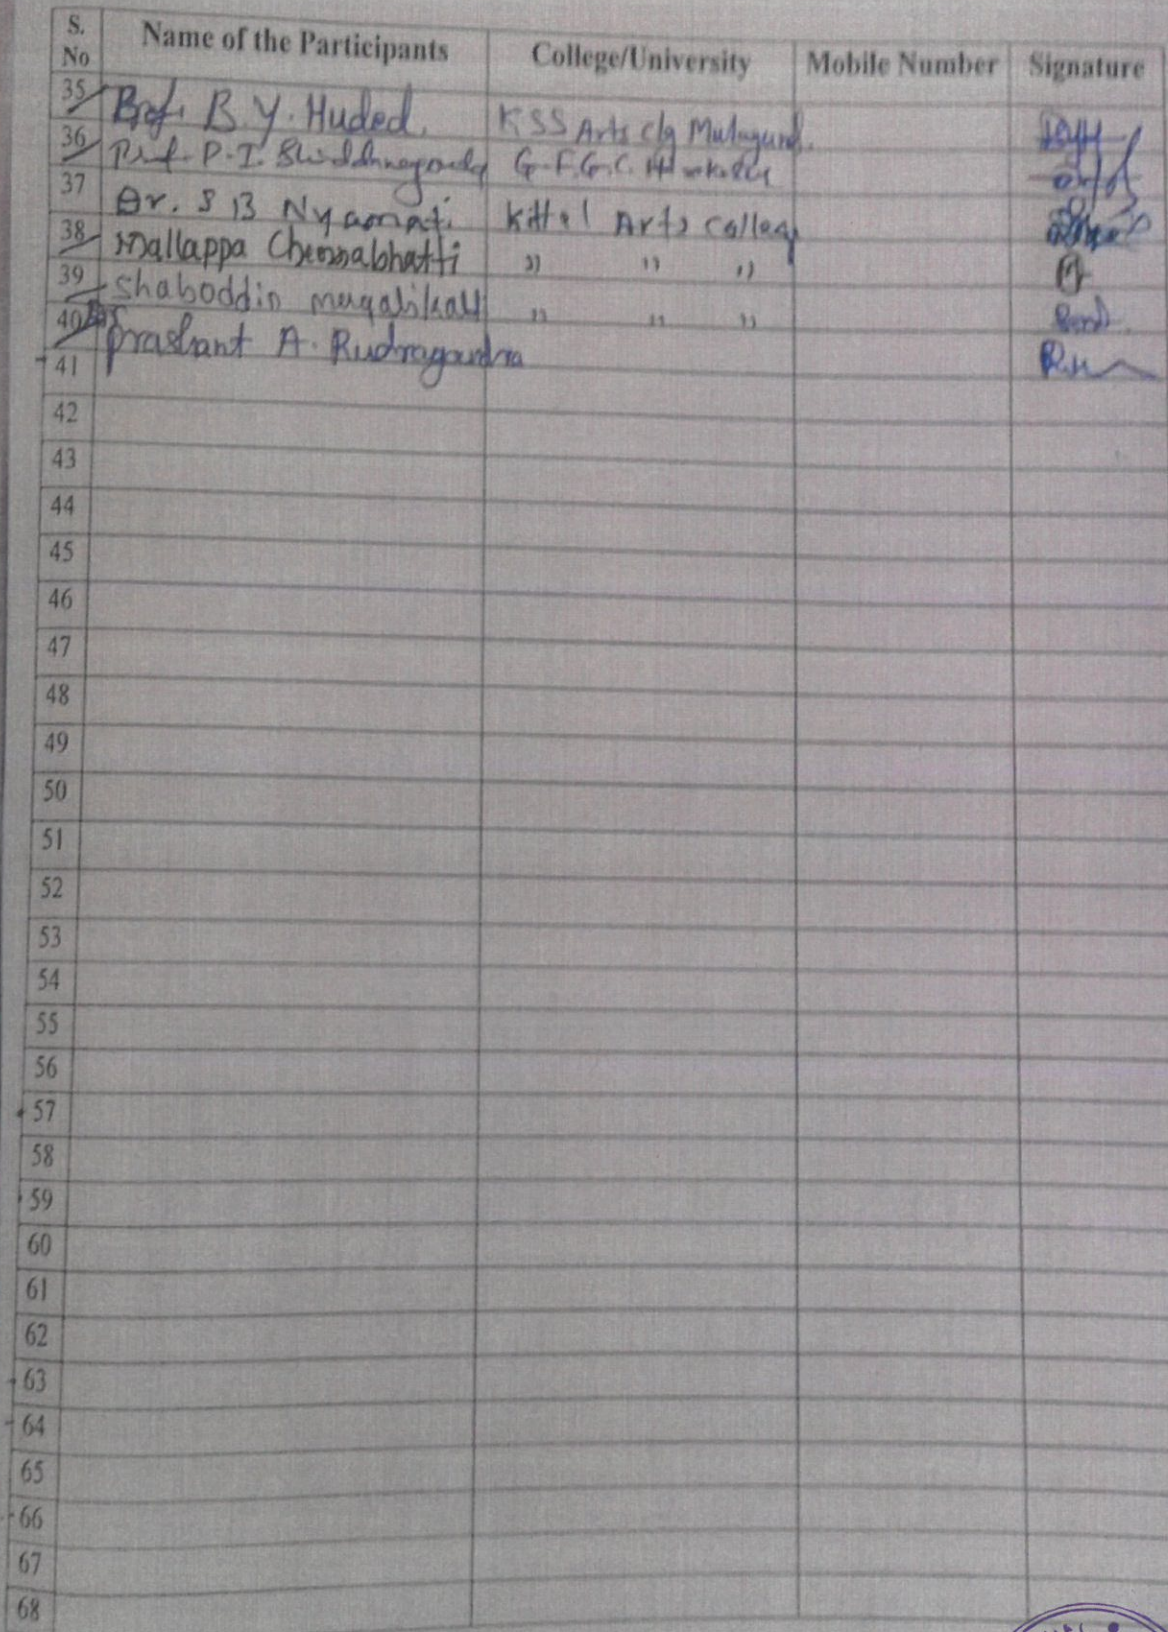 S. No Name of the Participants College/University Mobile Number Signature
35 Prof. B. Y. Huded. KSS Arts clg Mulagund.
36 Prof. P. I. G.F.G.C.
37 Dr. S B Nyamati Kittel Arts College
38 Mallappa Chennabhatti " " "
39 Shaboddin " " "
40 Prashant A.
41
42
43
44
45
46
47
48
49
50
51
52
53
54
55
56
57
58
59
60
61
62
63
64
65
66
67
68